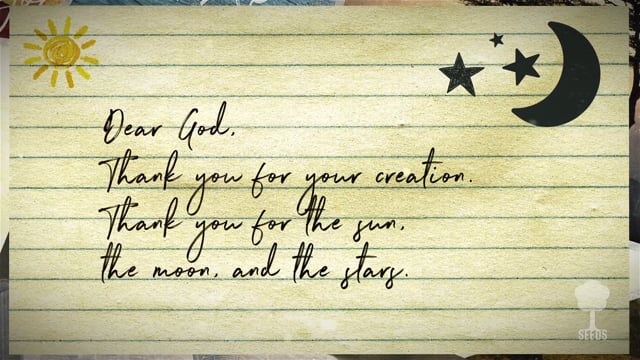 Dear God,
Thank you for your creation.
Thank you for the sun,
the moon, and the stars.
SEEDS